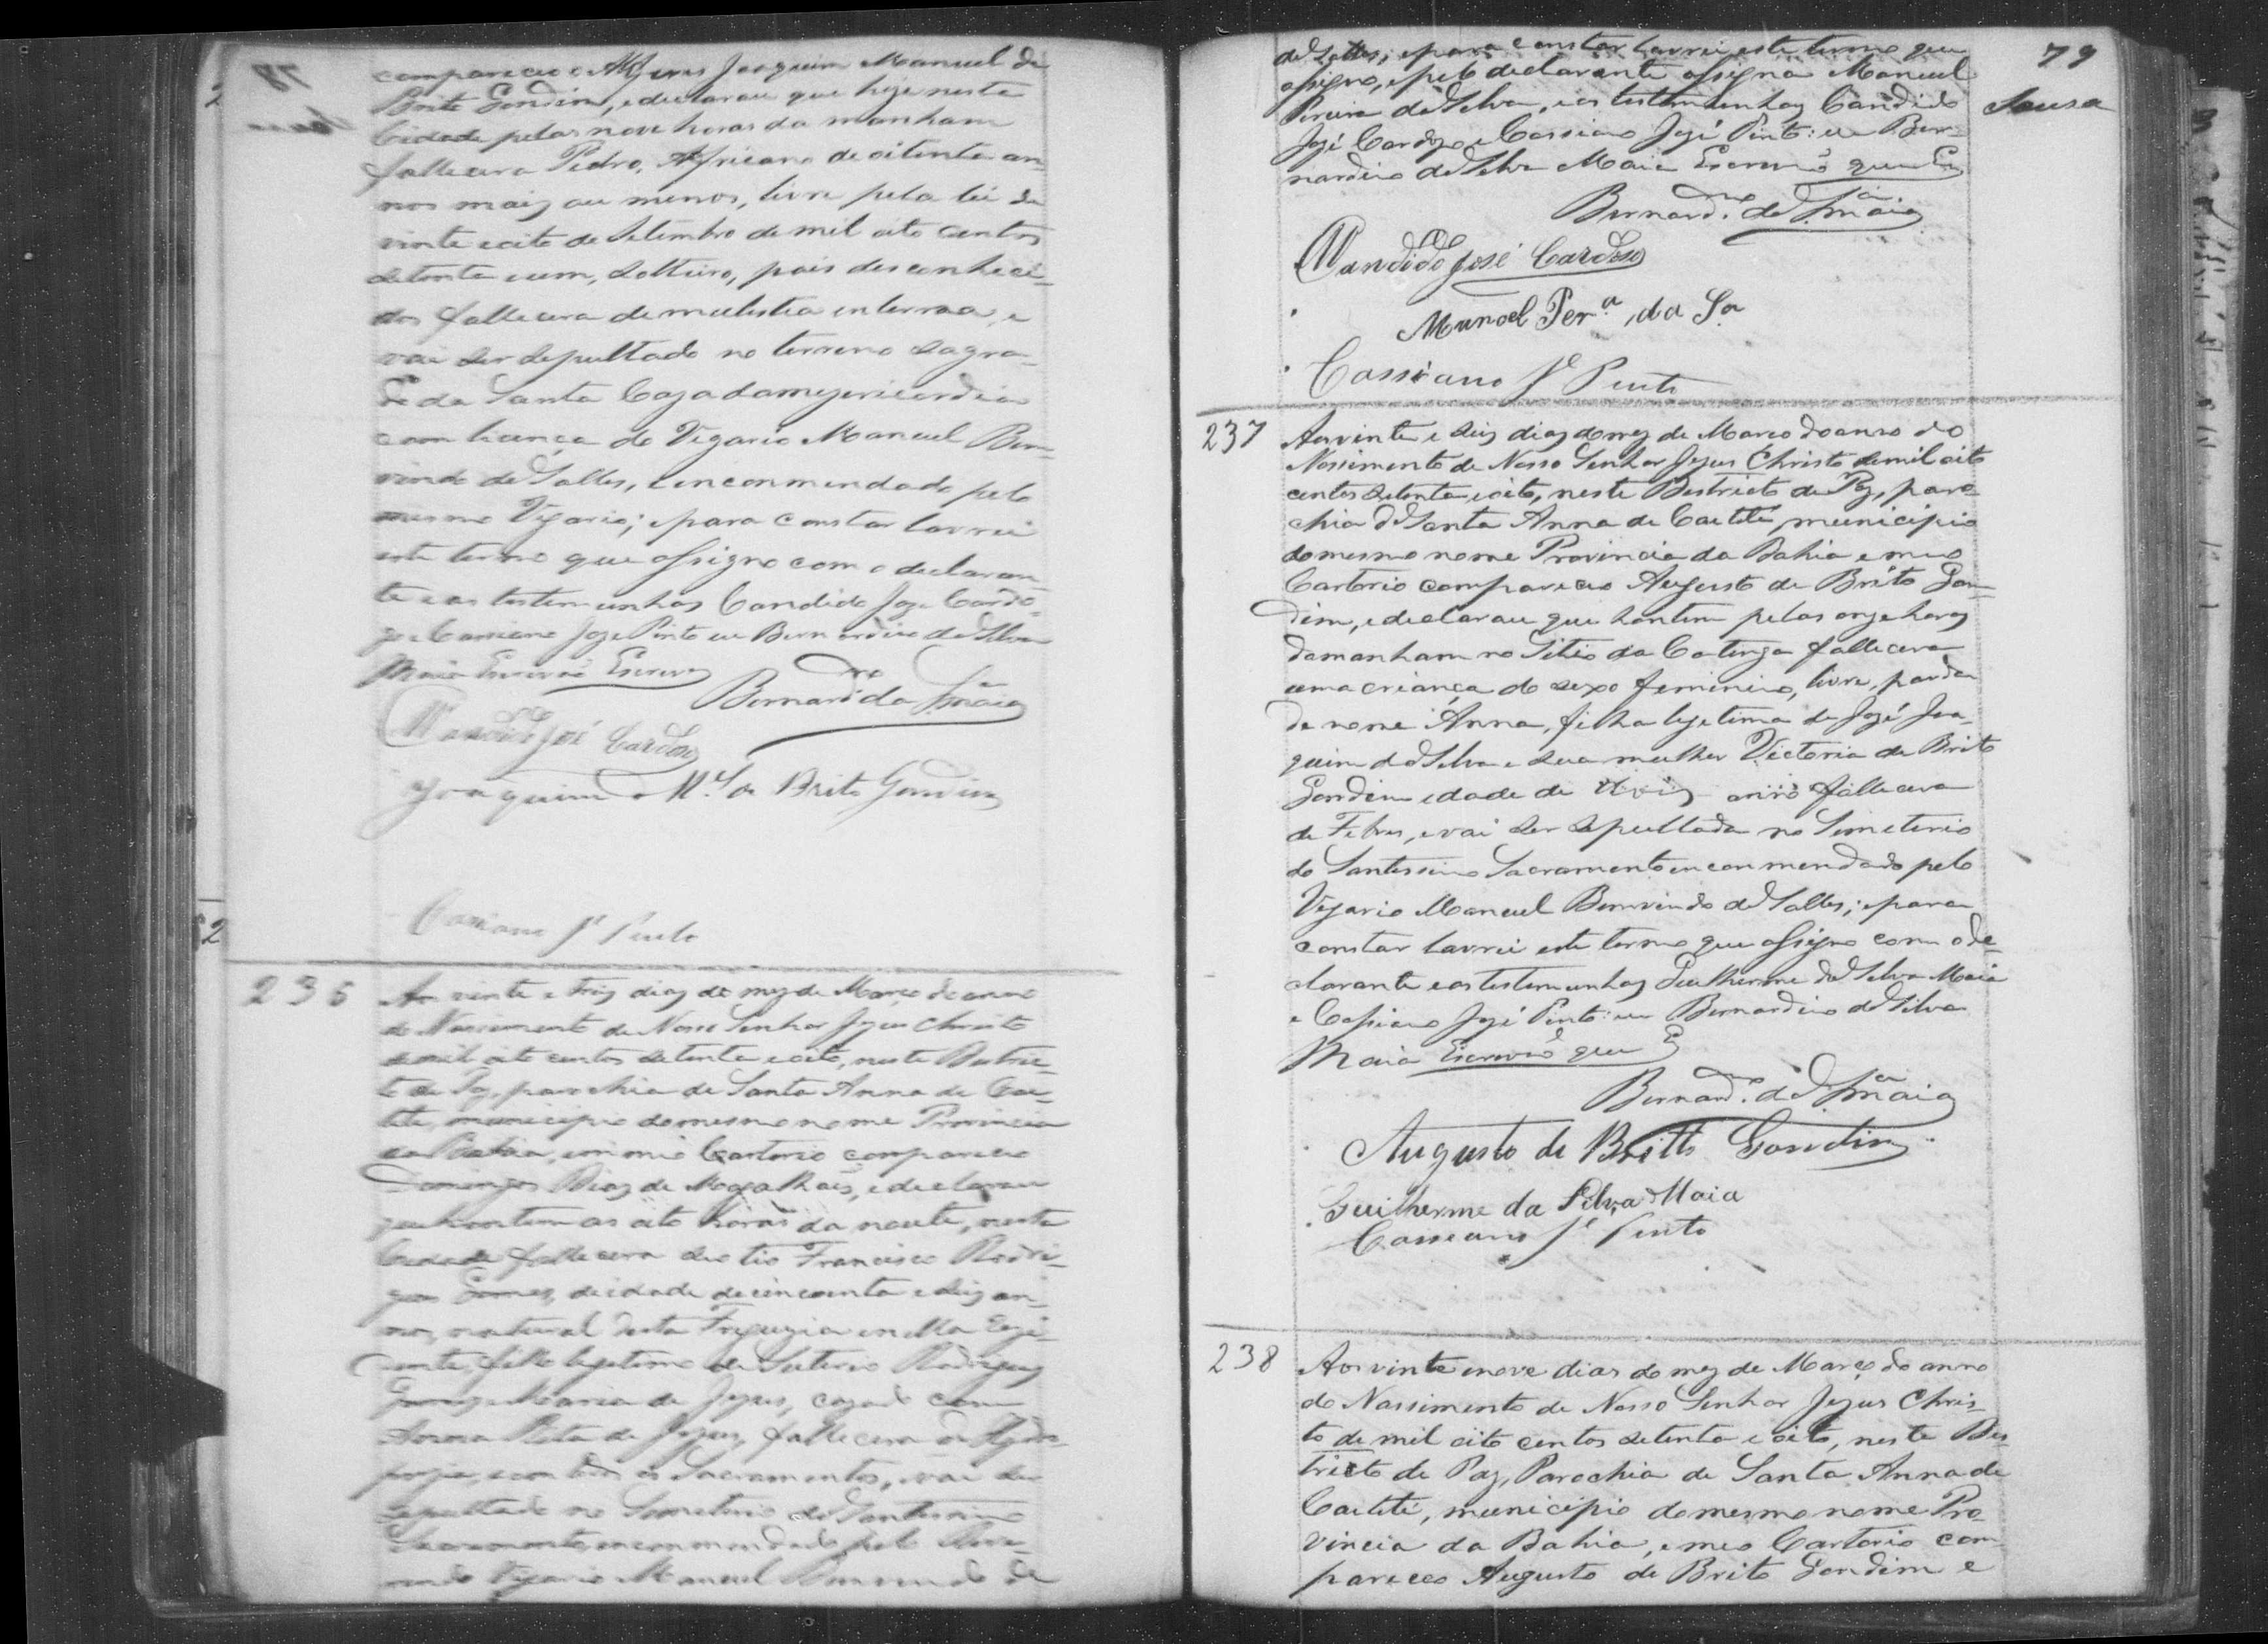 compareceo o Alferes Joaquim Manuel de
Brito Gondim, e declarou que hoje nesta
Cidade pelas nove horas da manham
fallecera Pedro, Africano de oitenta an-
nos mais ou menos, livre pela lei de
vinte e oito de Setembro de mil oito centos
setenta e um, solteiro, pais desconheci-
dos fallecera de molestia interna, e
vai ser sepultado no terreno sagra-
do da Santa Caza da mizericordia
com licença do Vigario Manuel Bem-
vindo de Salles, e inconmendado pelo
mesmo Vigario; e para constar lavrei
este termo que assigno com o declaran
te e as testemunhas Candido Joze Cardo-
zo e Cassiano Joze Pinto eu Bernardino da Silva
Maia Escrivão Escrevi
Bernardno da Sa Maia
Candido José Cardoso
Joaquim Mel de Brito Gondim
Cassiano Je Pinto
236 Aos vinte e trez dias do mez de Março do anno
do Nassimento de Nosso Senhor Jezus Christo
de mil oito centos setenta e oito, neste Distric-
to de Paz, parochia de Santa Anna de Cae-
tité, municipio do mesmo nome Provincia
da Bahia, em meo Cartorio compareceo
Domingos Dias de Magalhães, e declarou
que hontem as oito horas da noute, nesta
Cidade fallecera seo tio Francisco Rodri-
gues Gomes, de idade de cincoenta e seis an-
nos, natural desta Freguezia
filho legitimo de Rodrigues
Gomes e Maria de Jezus, cazado com
Anna Rita de Jezus, fallecera de Hydro-
pezia, com todos os Sacramentos, e vai ser
sepultado no Simeterio do Santissimo
Sacramento, encommendado pelo Reve-
rendo Vigario Manuel Bemvindo de
79
Sousa
de Salles; e para constar lavrei este termo que
assigno, e pelo declarante assigna Manuel
Pereira da Silva, e as testemunhas Candido
José Cardozo e Cassiano José Pinto: eu Ber-
nardino da Silva Maia Escrivão que Es
Bernardno da Sa Maia
Candido José Cardoso
Manoel Pera da Sa
Cassiano Je Pinto
237 Aos vinte e seis dias do mez de Marco do anno do
Nassimento de Nosso Senhor Jezus Christo de mil oito
centos setenta e oito, neste Destricto de Paz, paro-
chia de Santa Anna de Caetité, municipio
do mesmo nome Provincia da Bahia e meo
Cartorio compareceo Augusto de Brito Gon-
dim, e declarou que hontem pelas onze horas
da manham no Sitio da Catinga fallecera
uma criança do sexo feminino, livre, parda
de nome Anna, filha legetima de José Joa-
quim da Silva e sua mulher Victoria de Brito
Gondim edade de anno fallecera
de Febres, e vai ser sepultada no Simeterio
do Santissimo Sacramento enconmendado pelo
Vigario Manuel Bemvindo de Salles; e para
constar lavrei este termo que assigno com o de-
clarante e as testemunhas Guilherme da Silva Maia
e Cassiano José Pinto: eu Bernardino da Silva
Maia Escrivão que E
Bernardno da Sa Maia
Augusto de Britto Gondim
Guilherme da Silva Maia
Casseano Je Pinto
238 Aos vinte e nove dias do mez de Março do anno
do Nassimento de Nosso Senhor Jezus Chris-
to de mil oito centos setenta e oito, neste Des-
tricto de Paz, Parochia de Santa Anna de
Caetité, municipio do mesmo nome Pro-
vincia da Bahia, e meo Cartorio com-
pareceo Augusto de Brito Gondim e